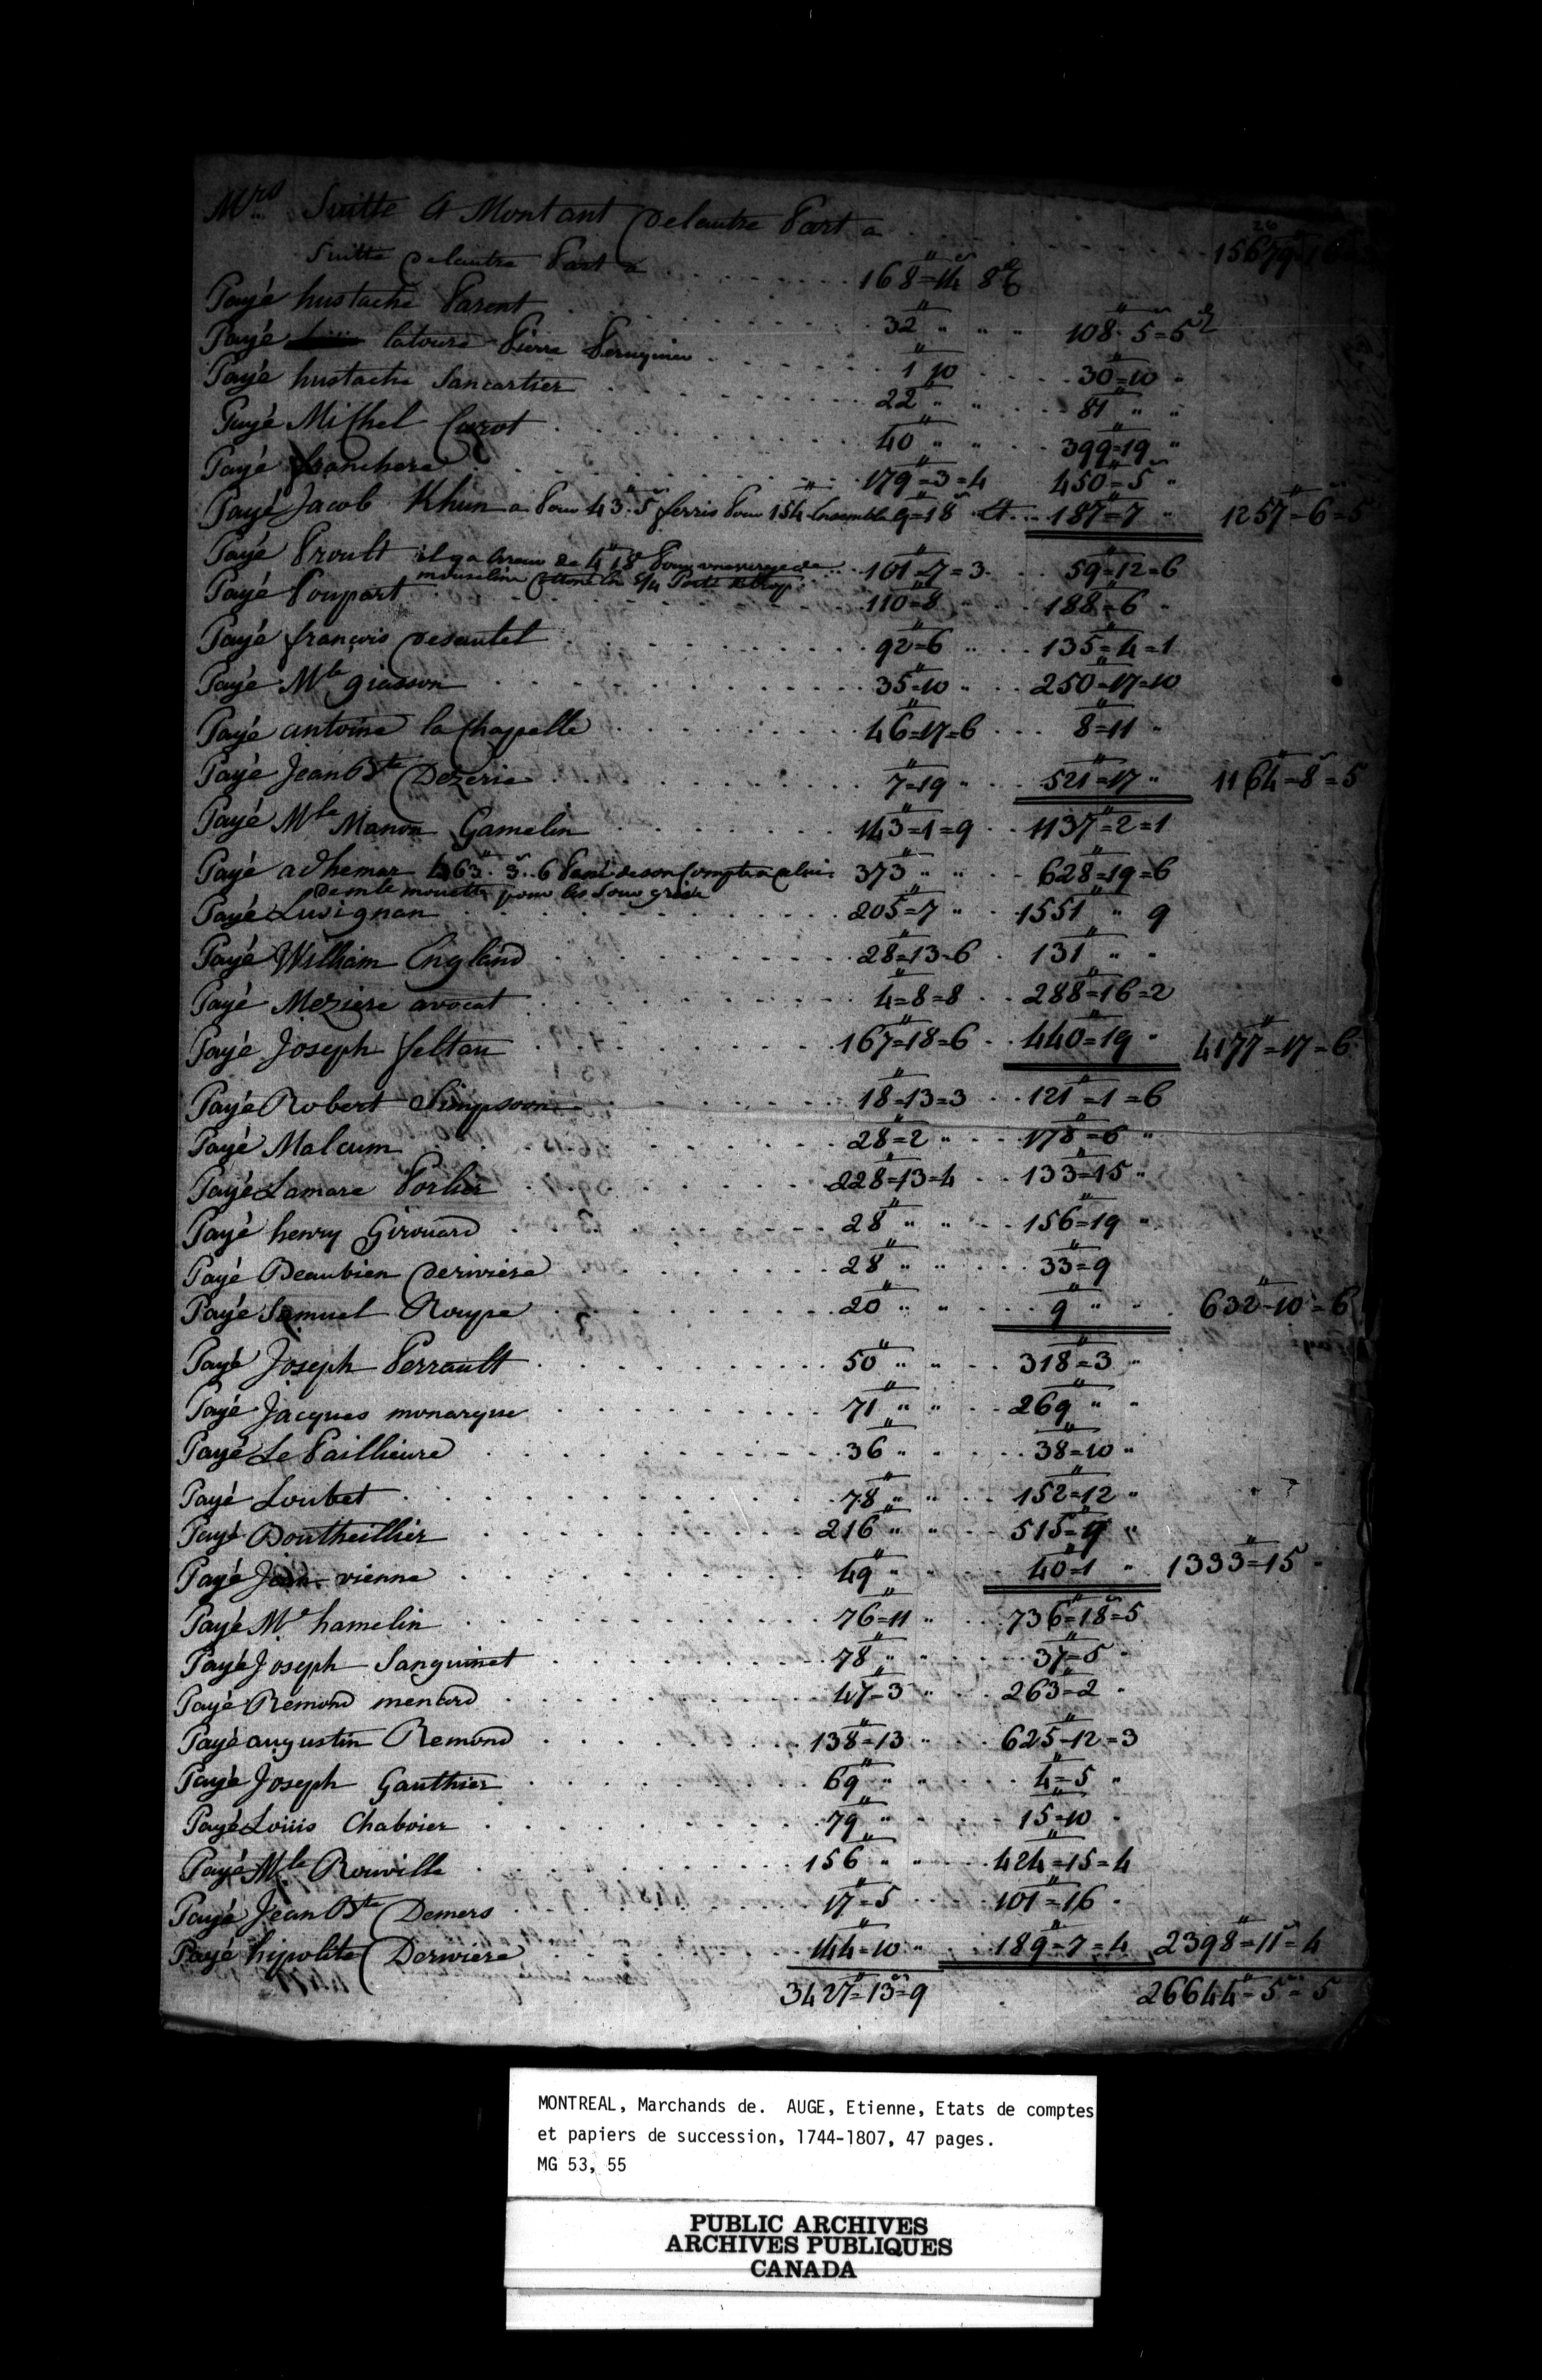 Mrs Suitte & Montant Delautre Part a . . . 15679=16
Suitte Delautre Part a . . . 168=14 8
Payé hustache Parent . . . 32 " " 108=5=5
Payé latoure Pierre . . . 1 10 30=10 "
Payé hustache Sancartier . . . 22 " " 81 " "
Payé Michel Curot . . . 40 " " 399=19 "
Payé franchere . . . 179=3=4 450=5 "
Payé Jacob Khun a Pour 43=5 ferris Pour 154 Ensemble 9=18 et 187=7 " 1257=6=5
Payé Proult il y a Erreur de 4 18 Pour une verge de 101=7=3 59=12=6
mouseline 5/4 Porté
Payé Poupart . . . 110=8 188=6 "
Payé françois Desautel . . . 92=6 " 135=4=1
Payé Mle giasson . . . 35=10 " 250=17=10
Payé antoine la Chapelle . . . 46=17=6 8=11 "
Payé Jean Bte Dezerie . . . 7=19 " 521=17 " 1164=8=5
Payé Mle Manon Gamelin . . . 143=1=9 1137=2=1
Payé adhemar 463=3=6 de son Compte a 373 " " 628=19=6
pour les
Payé Lusignan . . . 205=7 " 1551 " 9
Payé William England . . . 28=13=6 131 " "
Payé Meziere avocat . . . 4=8=8 288=16=2
Payé Joseph feltau . . . 167=18=6 440=19 " 4177=17=6
Payé Robert Simpson . . . 18=13=3 121=1=6
Payé Malcum . . . 28=2 " 178=6 "
Payé Lamare Porlier . . . 228=13=4 133=15 "
Payé henry Girouard . . . 28 " " 156=19 "
Payé Beaubien Deriviere . . . 28 " " 33=9
Payé Samuel . . . 20 " " 9 " " 632=10=6
Payé Joseph Perrault . . . 50 " " 318=3 "
Payé Jacques monarque . . . 71 " " 269 " "
Payé Le Paillieure . . . 36 " 38=10 "
Payé Loubet . . . 78 " " 152=12 "
Payé Boutheillier . . . 216 " " 515=9 "
Payé Jean vienne . . . 49 " 40=1 " 1333=15 "
Payé Mr hamelin . . . 76=11 " 736=18=5
Payé Joseph Sanguinet . . . 78 " " 37=5 "
Payé Remond menard . . . 47=3 " 263=2 "
Payé augustin Remond . . . 138=13 " 625=12=3
Payé Joseph Gauthier . . . 69 " " 4=5 "
Payé Louis Chaboier . . . 79 " 15=10 "
Payé Mle Rouville . . . 156 " " 424=15=4
Payé Jean Bte Demers . . . 17=5 101=16 "
Payé hipolite Deriviere . . . 144=10 " 189=7=4 2398=11=4
3427=13=9 26644=5=5
MONTREAL, Marchands de. AUGE, Etienne, Etats de comptes
et papiers de succession, 1744-1807, 47 pages.
MG 53, 55
PUBLIC ARCHIVES
ARCHIVES PUBLIQUES
CANADA